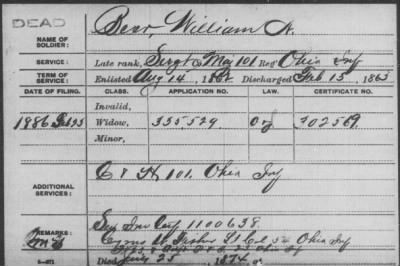 DEAD
NAME OF SOLDIER: Bear, William H.
SERVICE: Late rank, Sergt Maj 101 Reg't Ohio Inf
TERM OF SERVICE: Enlisted Aug 14, 1862 Discharged Feb 15, 1863
DATE OF FILING. CLASS. APPLICATION NO. LAW. CERTIFICATE NO.
Invalid,
1886 Widow, 335529 202569
Minor,
ADDITIONAL SERVICES: C & H 101. Ohio Inf
REMARKS: 1100638
Lt Col 54 Ohio Inf
Died 25, 1874, at